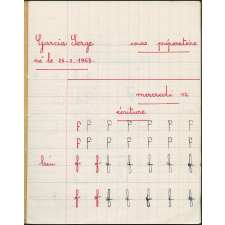 Garcia Serge cours préparatoire
né le 26-2-1963.
mercredi 12
écriture
f f f f f f f
f f f f f f f
bien f f f f f f f
f f f f f f f